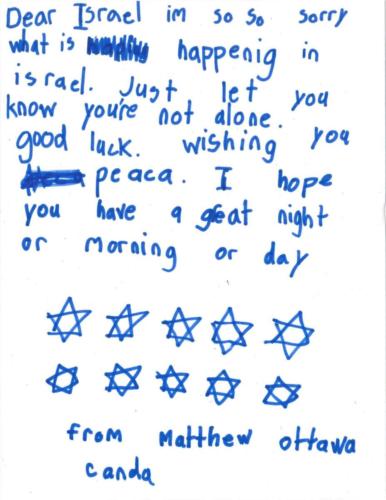 Dear Israel im so so sorry
what is happenig in
israel. Just let you
know you're not alone.
good luck. wishing you
peaca. I hope
you have a great night
or morning or day
from Matthew ottawa
canda